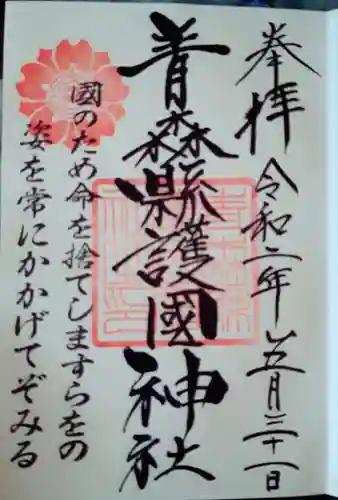 奉拝 令和二年五月三十一日
青森縣護國神社
國のため命を捨てしますらをの
姿を常にかかげてぞみる